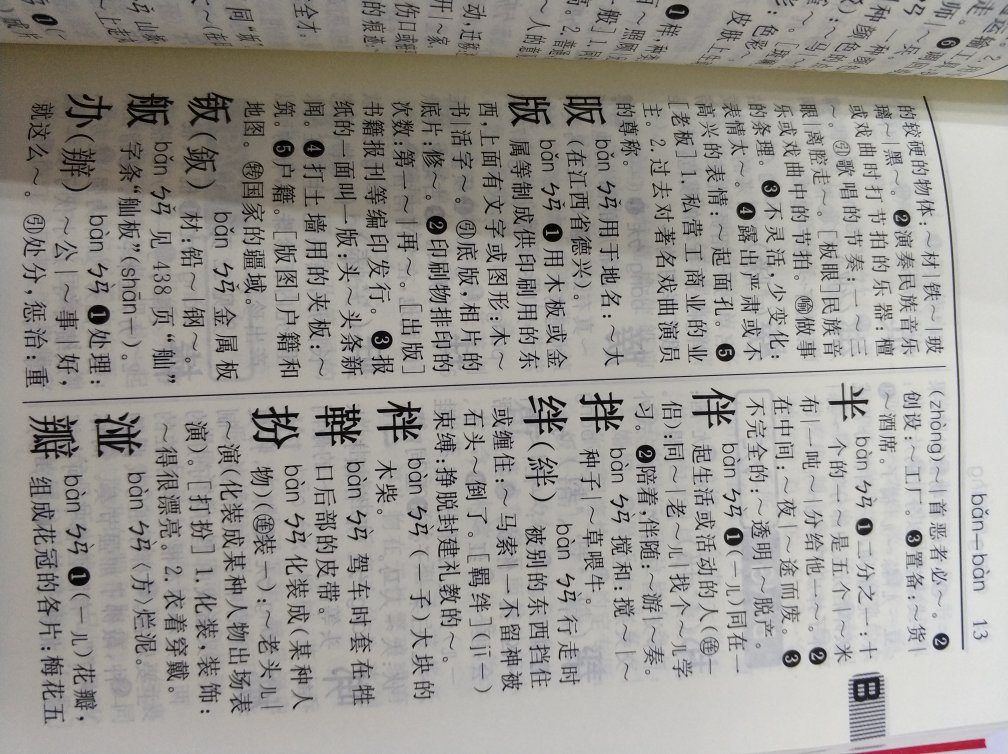 bǎn–bàn 13
B
的较硬的物体：～材｜铁～｜玻
璃～｜黑～。❷演奏民族音乐
或戏曲时打节拍的乐器：檀
～。㊂歌唱的节奏：一～三
眼｜离腔走～。［板眼］民族音
乐或戏曲中的节拍。㊉故事
的条理。❸不灵活，少变化：
表情太～。❹露出严肃或不
高兴的表情：～起面孔。❺
［老板］1. 私营工商业的业
主。2. 过去对著名戏曲演员
的尊称。
昄 bǎn ㄅㄢˇ 用于地名：～大
（在江西省德兴）。
版 bǎn ㄅㄢˇ ❶用木板或金
属等制成供印刷用的东
西，上面有文字或图形：木～
书｜活字～。㊂底版，相片的
底片：修～。❷印刷物排印的
次数：第一～｜再～。［出版］
书籍报刊等编印发行。❸报
纸的一面叫一版：头～头条新
闻。❹打土墙用的夹板：～
筑。❺户籍。［版图］户籍和
地图。㊕国家的疆域。
钣（鈑） bǎn ㄅㄢˇ 金属板
材：铅～｜钢～。
舨 bǎn ㄅㄢˇ 见 438 页“舢”
字条“舢板”（shān－）。
办（辦） bàn ㄅㄢˋ ❶处理：
～公｜～事｜好，
就这么～。㊂处分，惩治：重
（zhòng）～｜首恶者必～。❷
创设：～工厂。❸置备：～货｜
～酒席。
半 bàn ㄅㄢˋ ❶二分之一：十
个的一～是五个｜～米
布｜一吨～｜分给他一～。❷
在中间：～夜｜～途而废。❸
不完全的：～透明｜～脱产。
伴 bàn ㄅㄢˋ ❶（－儿）同在一
起生活或活动的人（㊣－
侣）：同～｜老～儿｜找个～儿学
习。❷陪着，伴随：～游｜～奏。
拌 bàn ㄅㄢˋ 搅和：搅～｜～
种子｜～草喂牛。
绊（絆） bàn ㄅㄢˋ 行走时
被别的东西挡住
或缠住：～马索｜一不留神被
石头～倒了。［羁绊］（jī－）
束缚：挣脱封建礼教的～。
柈 bàn ㄅㄢˋ（－子）大块的
木柴。
靽 bàn ㄅㄢˋ 驾车时套在牲
口后部的皮带。
扮 bàn ㄅㄢˋ 化装成（某种人
物）（㊣装－）：～老头儿｜
～演（化装成某种人物出场表
演）。［打扮］1. 化装，装饰：
～得很漂亮。2. 衣着穿戴。
湴 bàn ㄅㄢˋ〈方〉烂泥。
瓣 bàn ㄅㄢˋ ❶（－儿）花瓣，
组成花冠的各片：梅花五